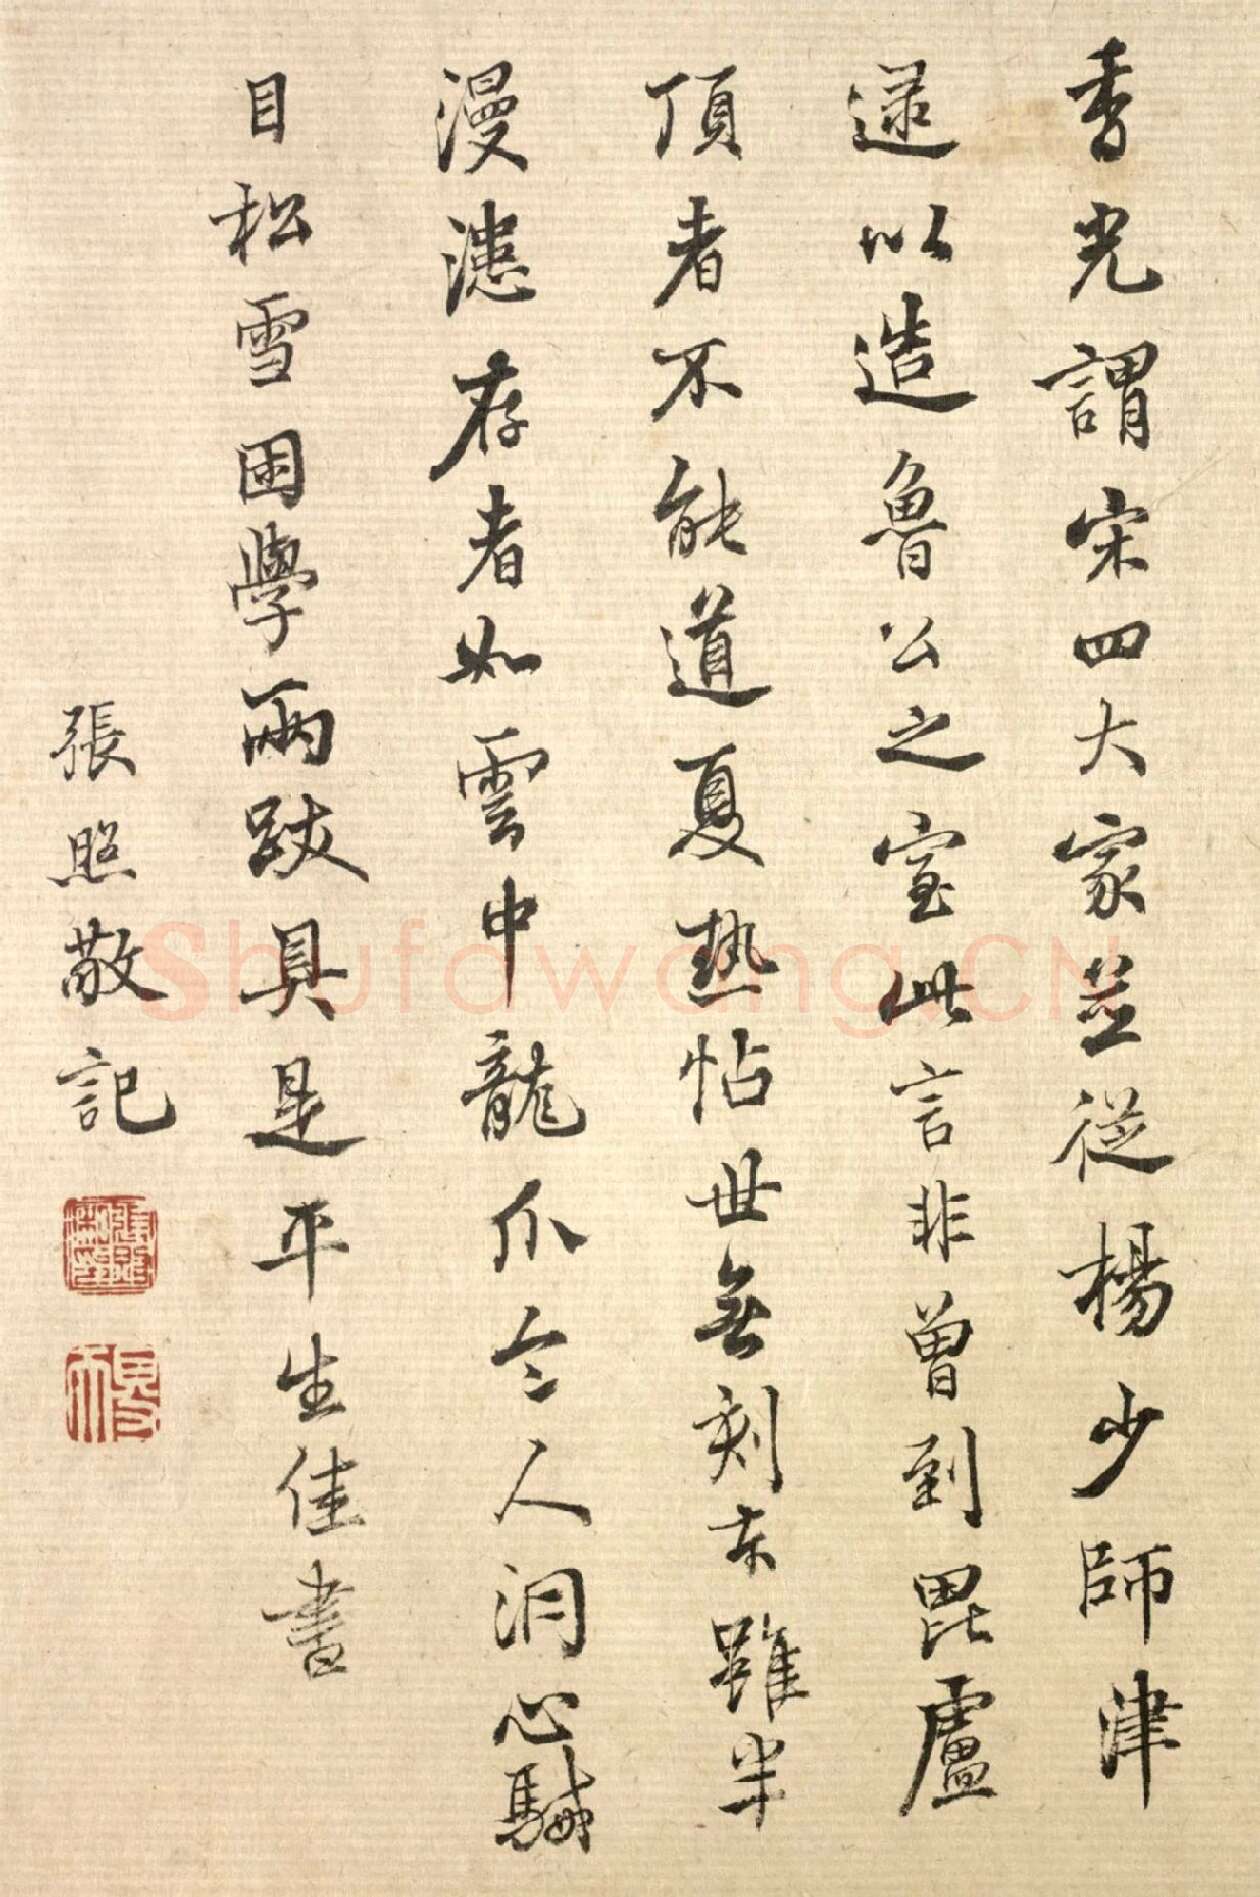 香光謂宋四大家並從楊少師津
逮以造魯公之室此言非曾到毘盧
頂者不能道夏熱帖世無刻本雖半
漫漶存者如雲中龍爪令人洞心駴
目松雪困學兩跋具是平生佳書
張照敬記
shufawang.CN